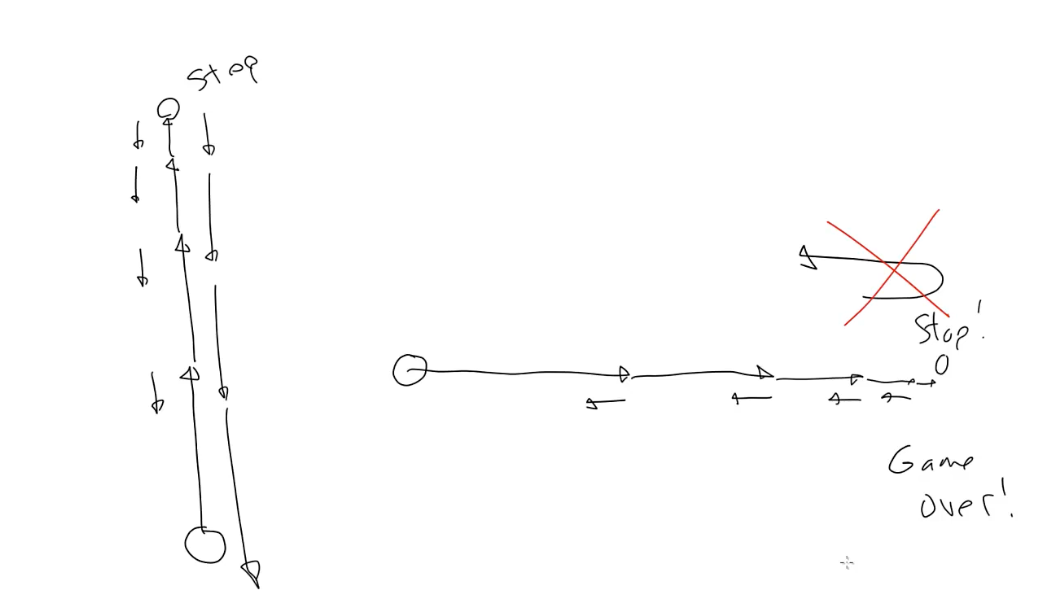 Stop
Stop!
0
Game
Over!